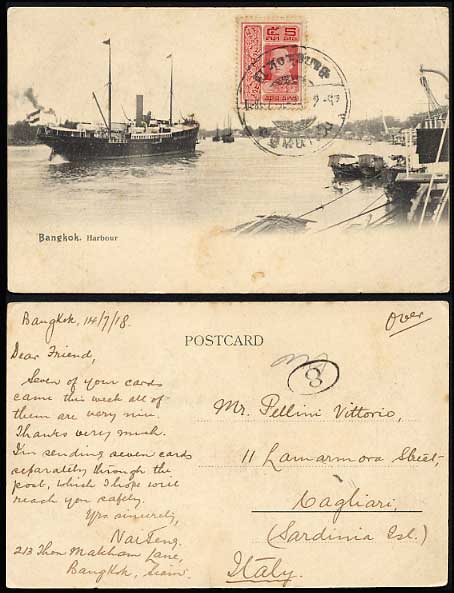 Bangkok. Harbour
Bangkok, 14/7/18.
Over
POSTCARD
8
Dear Friend,
Seven of your cards
came this week all of
them are very nice.
Thanks very much.
I'm sending seven cards
separately through the
post, which I hope will
reach you safely.
Yrs sincerely,
Nai Seng.
213 Thon Makham Lane,
Bangkok, Siam.
Mr. Pellini Vittorio,
11 Lamarmora Street,
Cagliari,
(Sardinia Isl.)
Italy.